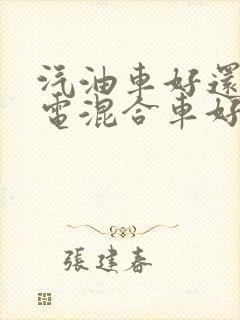 汽油車好還
電混合車好
張建春